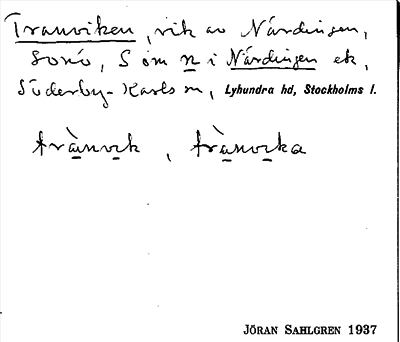 Tranviken, vik av Närdingen,
sonö, S om n i Närdingen ek,
Söderby-Karls sn, Lyhundra hd, Stockholms l.
trànvɩk, trànvɩka
JÖRAN SAHLGREN 1937